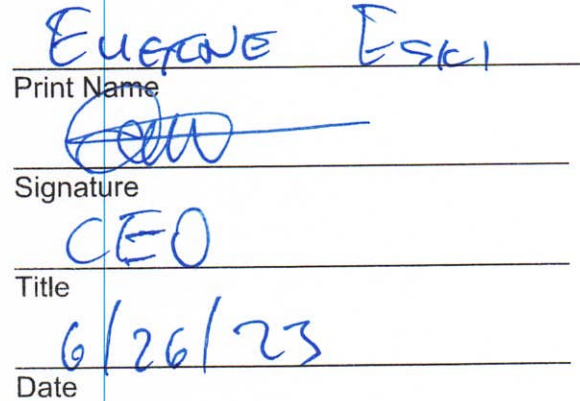 EUGENE ESKI
Print Name
Signature
CEO
Title
6/26/23
Date